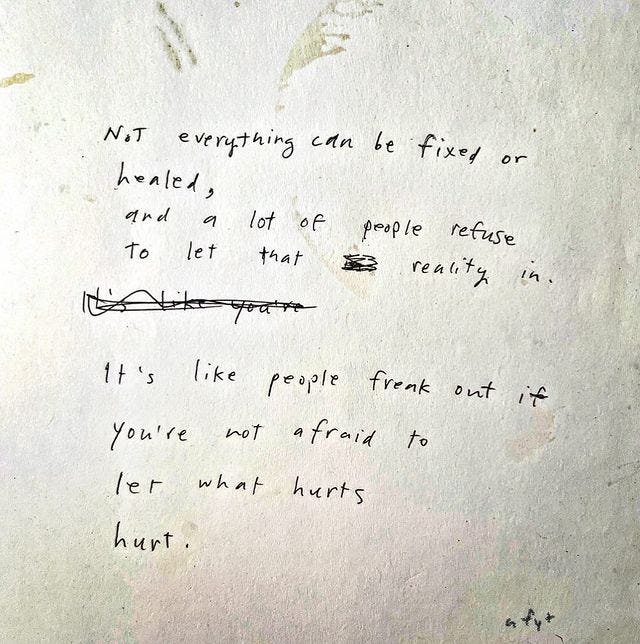 Not everything can be fixed or
healed,
and a lot of people refuse
to let that reality in.
It's like you're
It's like people freak out if
you're not afraid to
let what hurts
hurt.